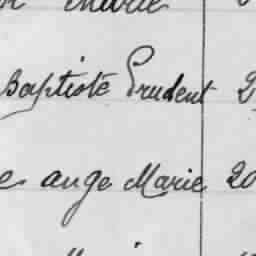 Baptiste Prudent 2
ange Marie 20